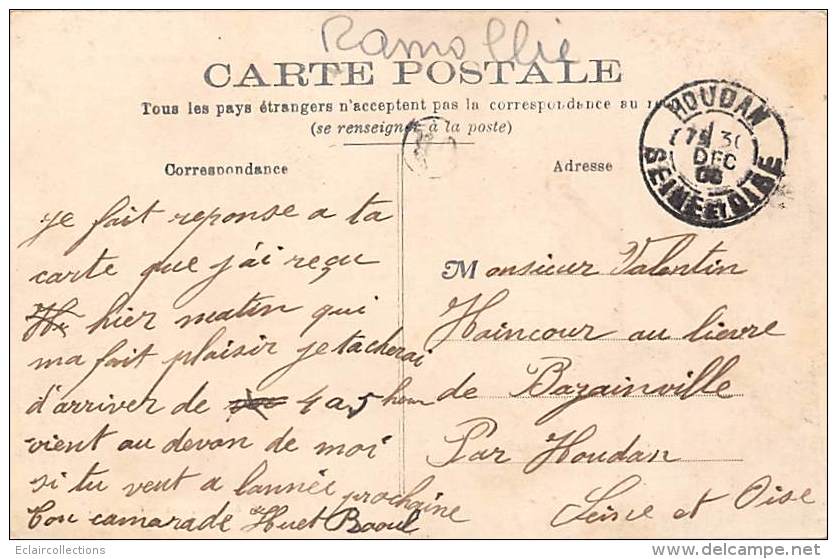 Ramollie
CARTE POSTALE
Tous les pays étrangers n'acceptent pas la correspondance au
(se renseigner à la poste)
Correspondance
Adresse
HOUDAN
30
DEC
SEINE ET OISE
je fait reponse a ta
carte que j'ai reçu
hier matin qui
ma fait plaisir je tacherai
d'arriver de 4 a 5 heur
vient au devan de moi
si tu veut a lannée prochaine
Ton camarade Huet Raoul
Monsieur Valentin
Haincour au lievre
de Bazainville
Par Houdan
Seine et Oise
Eclaircollections
delcampe.net